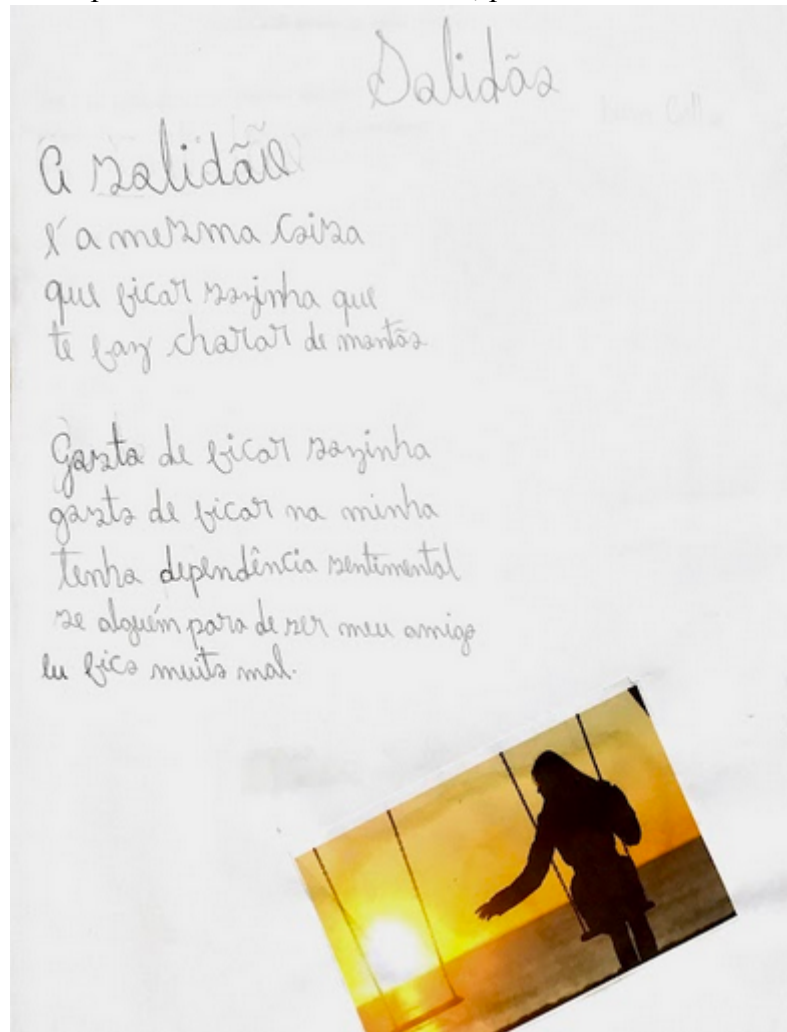 Solidão
A solidão
é a mesma coisa
que ficar sozinha que
te faz chorar de montão
Gosto de ficar sozinha
gosto de ficar na minha
tenho dependência sentimental
se alguém para de ser meu amigo
eu fico muito mal.